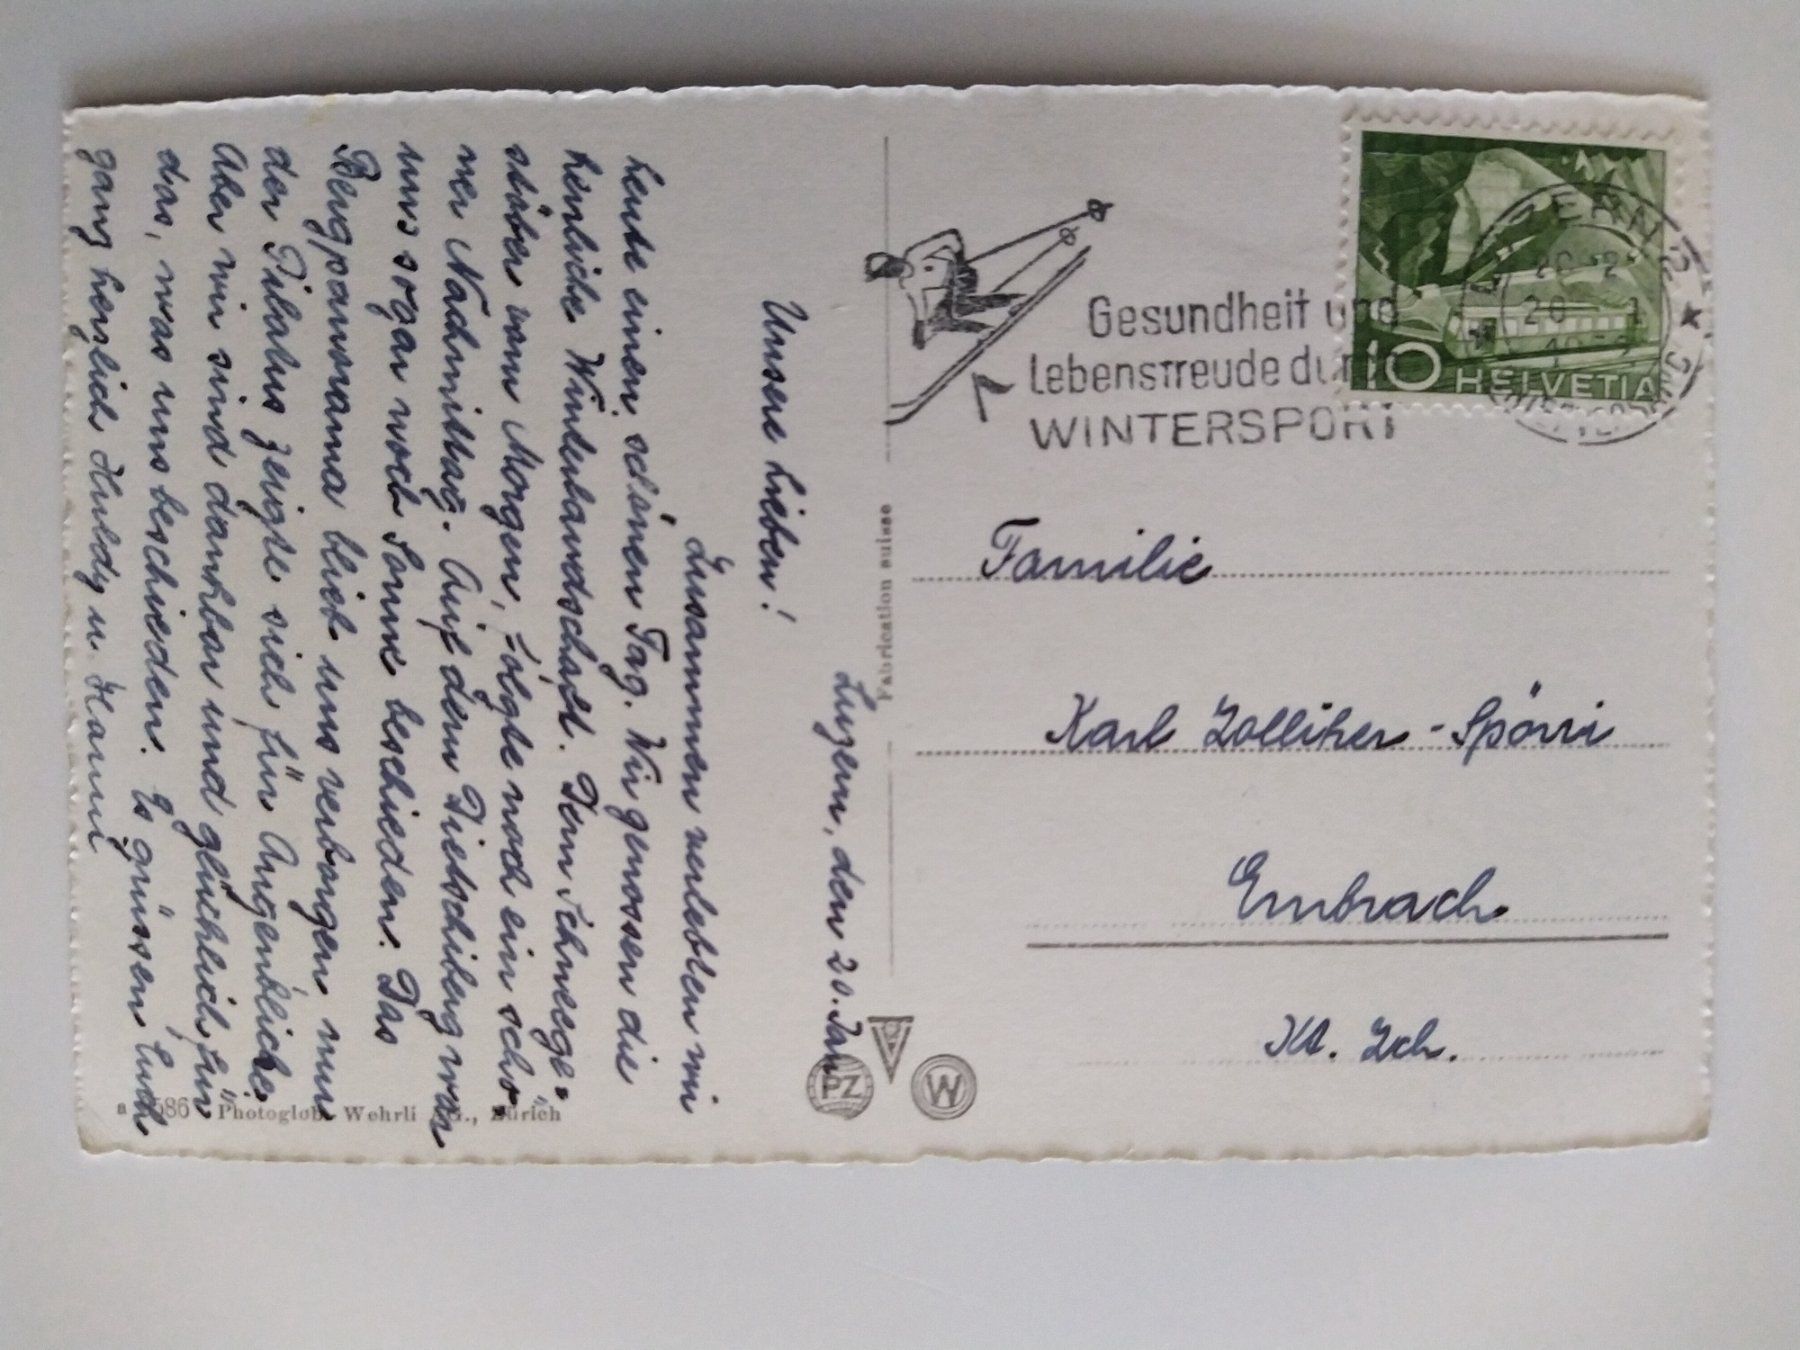 Luzern, den 20. Jan.
Unsere Lieben!
Zusammen verlebten wir
heute einen schönen Tag. Wir genossen die
herrliche Winterlandschaft. Dem Schneege-
stöber vom Morgen, folgte noch ein schö-
ner Nachmittag. Auf dem Dietschiberg war
uns sogar noch Sonne beschieden. Das
Bergpanorama blieb uns verborgen nur
der Pilatus zeigte sich für Augenblicke.
Aber wir sind dankbar und glücklich für
das, was uns beschieden. Es grüssen Euch
ganz herzlich Huldy u. Hanni
Fabrication suisse
586 Photoglob-Wehrli AG., Zürich
PZ
W
Gesundheit und
Lebensfreude durch
WINTERSPORT
10 HELVETIA
LUZERN 2
20
Familie
Karl Zolliker-Spörri
Embrach.
Kt. Zch.